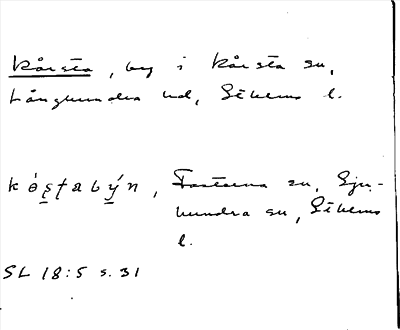 Kårsta, by i Kårsta sn,
Långhundra hd, Sthlms l.
Fasterna sn, Sju-
hundra sn, Sthlms
l.
SL 18:5 s. 31